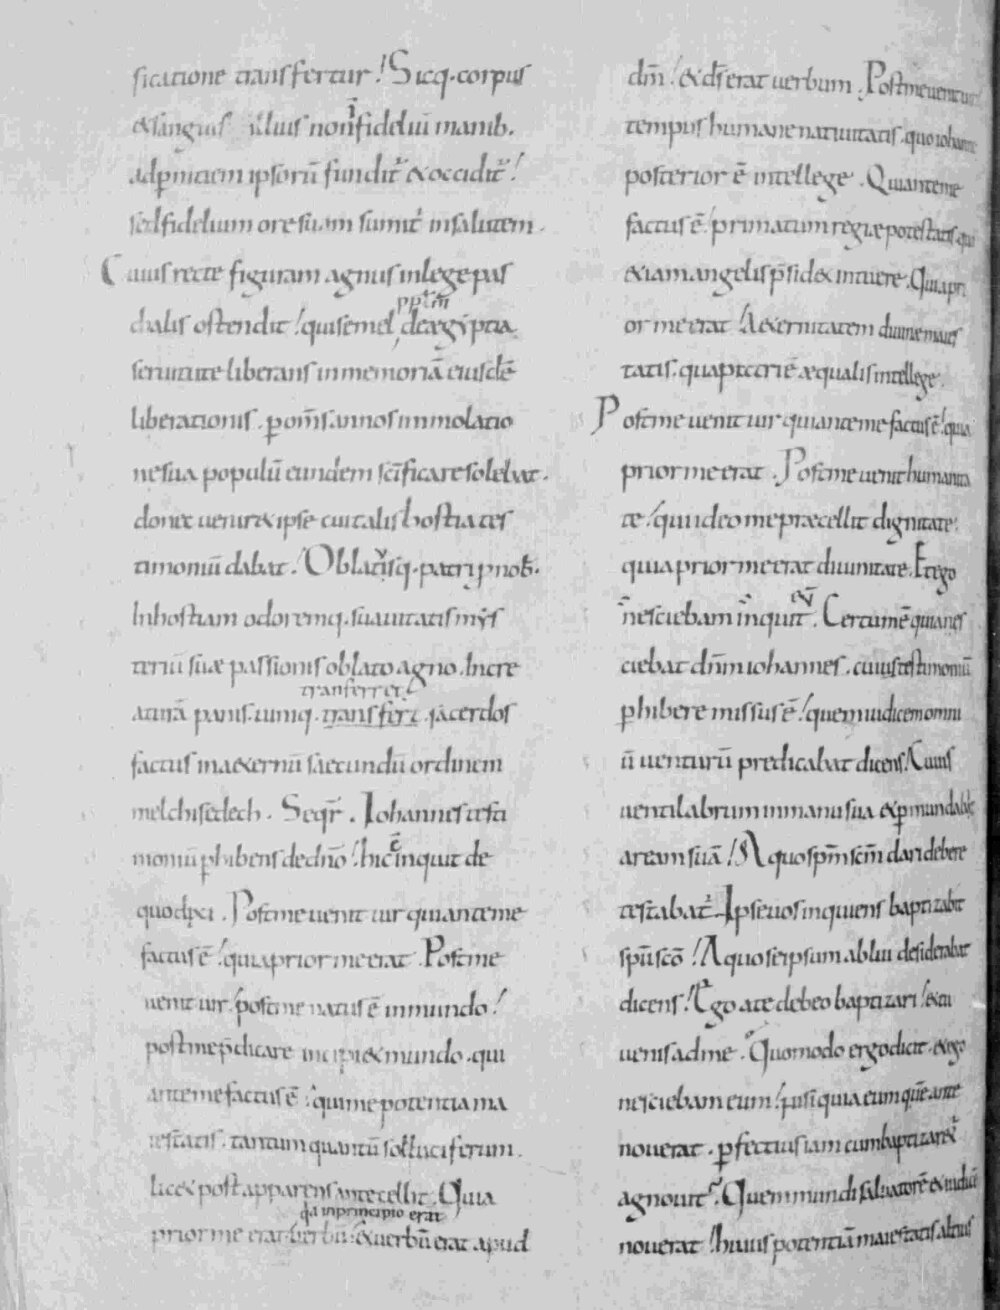 ficatione transfertur. Sicq. corpus
& sanguis illius non īfideliū manib.
ad ꝑniciem ipsorū fundit᷑ & occidit᷑.
sed fidelium ore suam sumit᷑ insalutem.
Cuius recte figuram agnus inlege pas
chalis ostendit. qui semel pp̄lm de ægyptia
seruitute liberans in memoriā eiusdē
liberationis. ꝑ om̄s annos immolatio
ne sua populū eundem sc̄ificare solebat.
donec ueniret ipse cui talis hostia tes
timoniū dabat. Oblatusq. patri ꝓ nob.
In hostiam odoremq. suauitatis mys
teriū suæ passionis oblato agno. In cre
aturā panis. uiniq. transferret transfert. sacerdos
factus in æternū secundū ordinem
melchisedech. Seqr̄. Iohannes testi
moniū ꝑhibens de dn̄o. hic ē inquit de
quo dixi. Post me uenit uir qui ante me
factus ē. quia prior me erat. Post me
uenit uir. post me natus ē in mundo.
post me p̄dicare incipi& mundo. qui
ante me factus ē. qui me potentia ma
iestatis. tantum quantū sol luciferum.
lic& post apparens antecellit. Quia
prior me erat. qa inprincipio erat uerbū. & uerbū erat apud
dm̄. & ds̄ erat uerbum. Post me uenit uir
tempus humane natiuitatis. quo iohanne
posterior ē intellege. Qui ante me
factus ē. primatum regiæ potestatis qui
etiam angelis p̄sid& intuere. Quia pri
or me erat. æternitatem diuine maies
tatis. qua patri ē æqualis intellege.
Post me uenit uir qui ante me factus ē. quia
prior me erat. Post me uenit humanita
te. qui ideo me præcellit dignitate.
quia prior me erat diuinitate. Et ego
nesciebam inquit eū. Certum ē quia nes
ciebat dn̄m iohannes. cuius testimoniū
ꝑhibere missus ē. quem iudicem omni
ū uenturū predicabat dicens. Cuius
uentilabrum in manu sua & ꝑmundabit
aream suā. A quo sp̄m sc̄m dari debere
testabat᷑. Ipse uos inquiens baptizabit
spū sc̄o. A quo se ipsum ablui desiderabat
dicens. Ego a te debeo baptizari. & tu
uenis ad me. Quomodo ergo dicit. & ego
nesciebam eum. nisi quia eum quē ante
nouerat. ꝑfectius iam cum baptizar&
agnouit. Quem mundi saluatorē & iudicē
nouerat. huius potentiā maiestatis altius